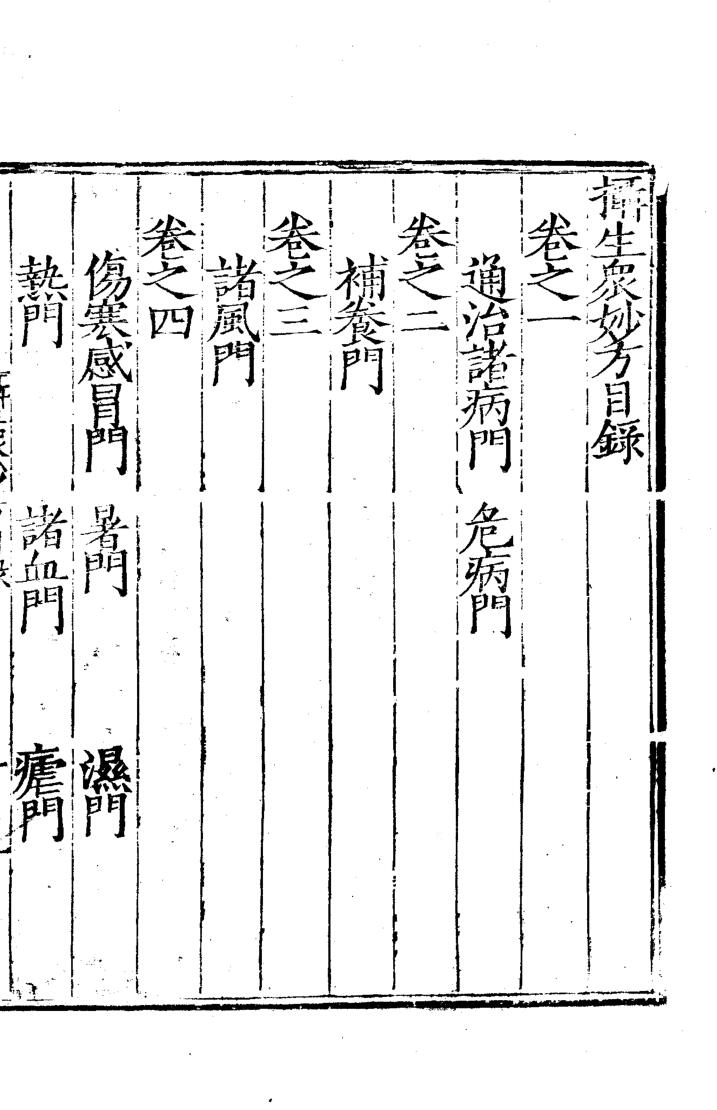 攝生衆妙方目錄
卷之一
通治諸病門 危病門
卷之二
補養門
卷之三
諸風門
卷之四
傷寒感冒門 暑門 濕門
熱門 諸血門 瘧門